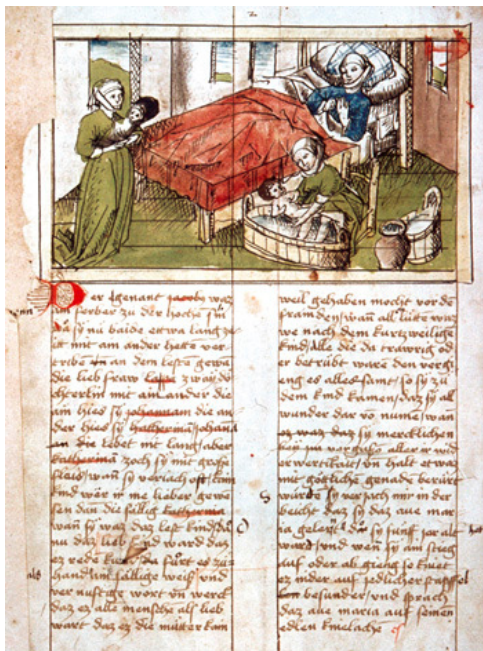 2
er egenant jacoby waz
ain ferber zu der hoche sin
da sy nu baide ettwa lang ze
itt mit am ander hetten ver
tribe an dem lesten gewā
die lieb fraw zway do
chterlin mit am ander die
ain hies sy johannam die an
der hies sy katherinā johana
an die lebet nit lang / aber
katherinā zoch sy mit grosse
fleis / wan̄ sy veriach oft / kain
kind wer ir nie lieber gewe
sen dan die sällig katherina
wan̄ sy waz daz lest kind /
nu daz lieb kind ward daz
ez rede da fürt es zu
hand ain sällige weiß und
vernuftige wort vn̄ werck
daz ez alle mensche als lieb
wart daz ez die mütter kam
als
weil gehaben mocht vor de
framden / wan̄ all lütte waz
we nach dem kurtzweilige
kind / alle die da trawrig od
er betrübt ware den verg
eng es alles samt / so sy zu
dem kind kamen / daz sy all
wunder dar vo nume / wan
ez waz daz sy mercklichen
aller ir wid
erwertikait / vn̄ halt etwaz
mit götliche genade berürt
würde sy veryach mir in der
beicht daz sy daz aue mar
ia gelernt da sy fünff jar alt
ward / und wen̄ sy ain stieg
auf oder ab gieng so kniet
ez nider auf yedlicher staffel
besunder / und sprach
daz aue maria auf seinen
edlen knielache